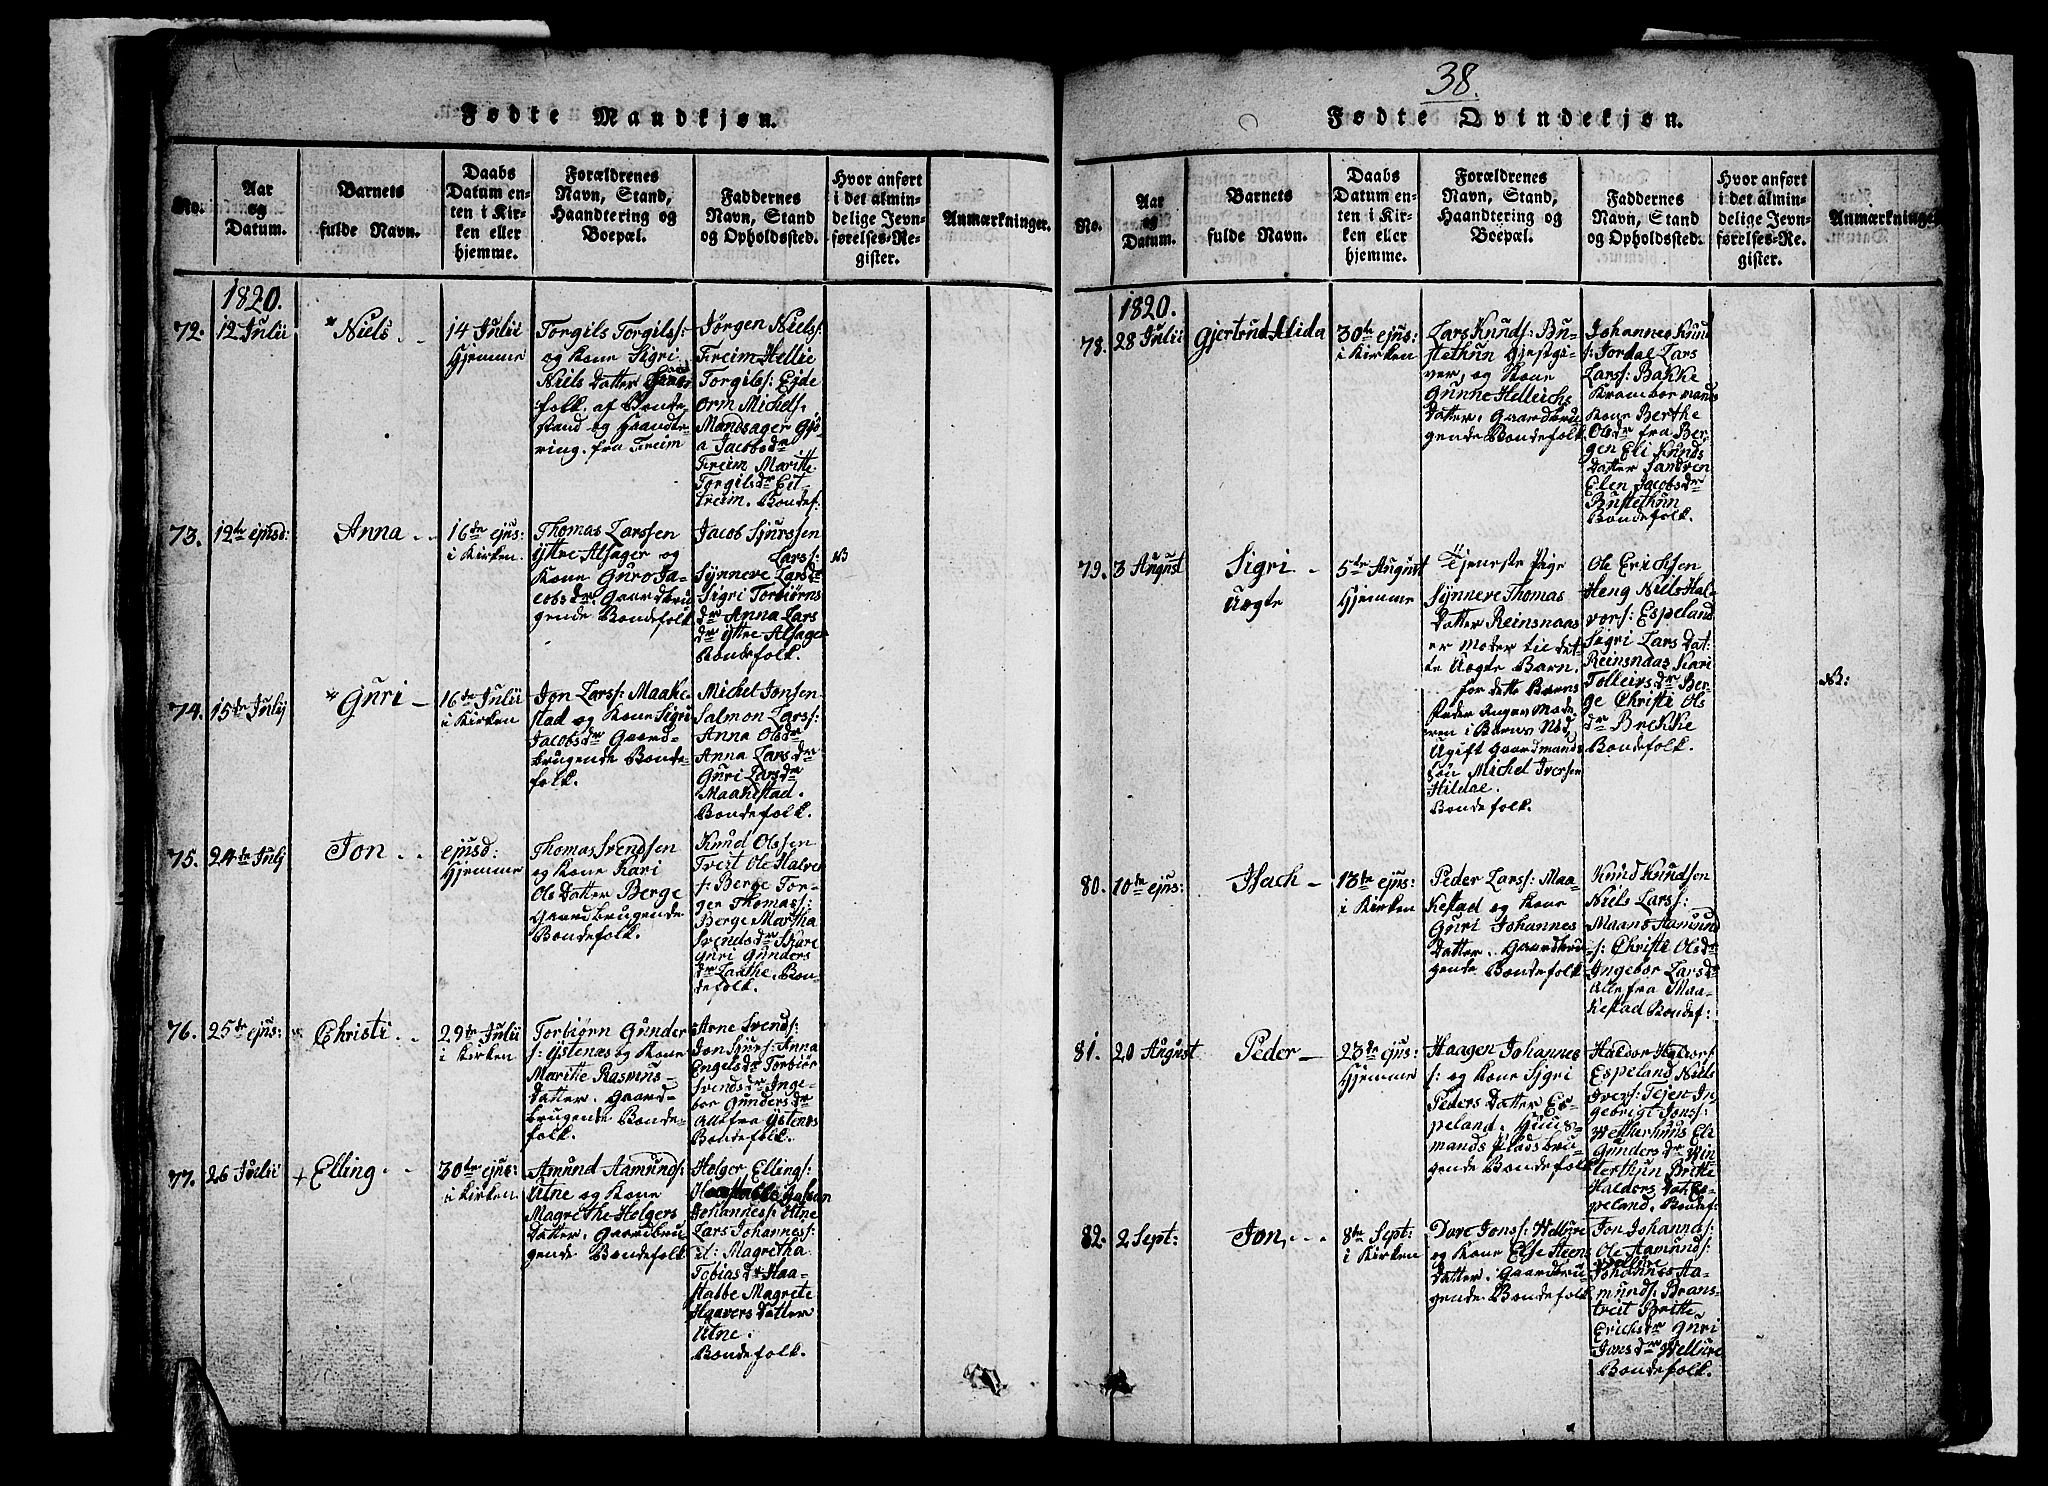 Fødte Mandkjøn.
No.
Aar
og
Datum.
Barnets
fulde Navn.
Daabs
Datum en-
ten i Kir-
ken eller
hjemme.
Forældrenes
Navn, Stand,
Haandtering og
Boepæl.
Faddernes
Navn, Stand
og Opholdssted.
Hvor anført
i det almin-
delige Jevn-
førelses-Re-
gister.
Anmærkninger.
1820.
72. 12 Julii
Niels
14 Julii
Hjemme
Torgils Torgilss:
og Kone Sigri
Niels Datter
folk. af Bonde-
stand og Haandte-
ring. fra Freim
Jørgen Nielss:
Freim Hellie
Torgilss: Ejde
Orm Michels.
Mandsager Gjø-
a Jacobsdr
Freim Maritte
Torgilsdr Eit-
treim. Bondef:
73. 12te ejusd:
Anna
16de ejus:
i Kirken.
Thomas Larssen
Ystre Alsager og
Kone Guro Ja-
cobsdr. Gaardbru
gende Bondefolk
Jacob Sjurssen
Larss:
Synneve Larsdr
Sigri Torbiørns
dr Anna Lars
dr ystre Alsager
Bondefolk.
NB
74. 15de Julij
Guri
16de Julii
i Kirken
Jon Larss: Maake
stad og Kone Sigri
Jacobsdr Gaard-
brugende Bonde-
folk.
Michel Jonsen
Salmon Larss:
Anna Olsdr
Anna Larsdr
Guri Larsdr
Maakestad.
Bondefolk.
75. 24de Julij
Jon
ejusd:
Hjemme
Thomas Svendsen
og Kone Kari
Ols Datter Berge
Gaardbrugende
Bondefolk.
Knud Olssen
Tveit Ole Halvor
s: Berge Tor-
ger Thomass:
Berge Martha
Svendsdr Skare
Guri Gunders
dr Laathe. Bon-
defolk.
76. 25de ejus:
Christi
29de Julii
i Kirken
Torbiørn Gunder
s: Ystenæs og Kone
Marithe Rasmus-
Datter. Gaard-
brugende Bonde-
folk.
Arne Svends:
Jon Sjurs: Anna
Engelsdr Torbiør
Svendsdr Inge-
bor Gundersdr
Alle fra Ystenæs
Bondefolk.
77. 26 Julii
+ Elling
30te ejus:
i Kirken
Amund Aamunds:
Utne og Kone
Magrethe Holgers
Datter. Gaardbru
gende Bondefolk
Holger Ellings:
Johanness: Utne
Lars Johanness:
it: Magretha
Tobiasdr Haa-
stabbe Magrete
Hgavers Datter
Utne.
Bondefolk.
38.
Fødte Qvindekjøn.
No.
Aar
og
Datum.
Barnets
fulde Navn.
Daabs
Datum en-
ten i Kir-
ken eller
hjemme.
Forældrenes
Navn, Stand,
Haandtering og
Boepæl.
Faddernes
Navn, Stand
og Opholdssted.
Hvor anført
i det almin-
delige Jevn-
førelses-Re-
gister.
Anmærkninger
1820.
78. 28 Julii
Gjertrud Alida
30te ejus:
i Kirken
Lars Knuds: Bu-
stethun Gjestgi-
ver, og Kone
Gunne Helleichs
Datter. Gaardbru
gende Bondefolk
Johannes Knud
s: Jordal Lars
Larss: Bakke
Krambormands
Kone Berthe
Olsdr fra Ber-
gen Eli Knuds
Datter Sandven
Elen Jacobsdr
Bustethun
Bondefolk.
79. 3 August
Sigri
Uægte
5te August
Hjemme
Tjeneste Pige
Synneve Thomas
Datter Reinsnaas
er Moder til det-
te Uægte Barn.
for dette Barns
Fader Angav Mode
ren i Barns Nød,
Ugift Gaardmands
Søn Michel Iversen
Hildae.
Bondefolk.
Ole Erichsen
Heng Niels Hal-
vors: Espeland
Sigri Lars Dat:
Reinsnaas Kari
Tolleivsdr Ber-
ge Christi Ols
dr Brekke
Bondefolk.
NB:
80. 10de ejus:
Isach
13de ejus:
i Kirken
Peder Larss: Maa-
kestad og Kone
Guri Johannes
Datter. Gaardbru
gende Bondefolk
Knud Knudsen
Niels Larss:
Maans Aamund
s: Christi Olsdr
Ingebor Larsdr
Alle fra Maa-
kestad Bondef:
81. 20 August
Peder
23de ejus:
Hjemme
Haagen Johannes
s: og Kone Sigri
Peders Datter Es-
peland. Huus-
mands Pladsbru-
gende Bondefolk
Haldor Haldors:
Espeland Niels
Ivers: Tejen In-
gebrigt Jonss:
Wetterhuus Eli
Gundersdr Win-
terthun Britte
Haldors Dat: Es-
peland. Bondef:
82. 2 Sept:
Jon
8de Sept:
i Kirken
Dave Jonss: Wellure
og Kone Else Steens
Datter. Gaardbru-
gende Bondefolk
Jon Johannss:
Ole Aamunds:
Wellure
Johannes Aa-
munds: Brans-
tveit Britte
Erichsdr Guri
Jonsdr Wellure
Bondefolk.